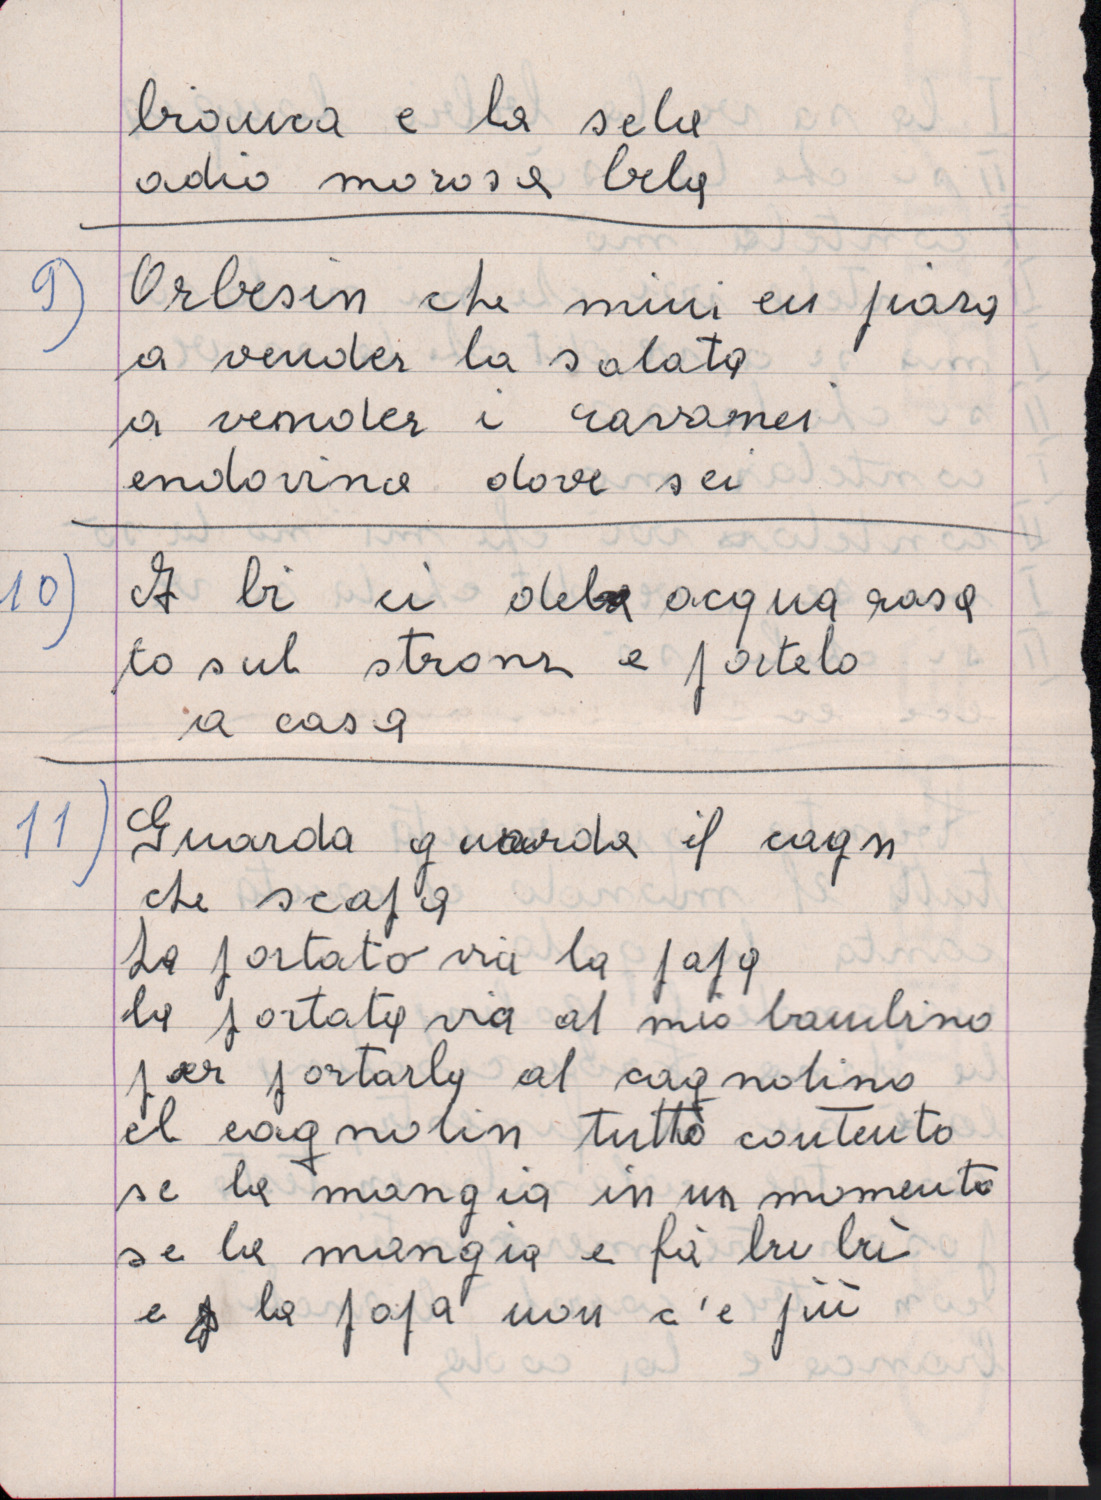 bianca e la sela
adio morosa bela
9) Orbesin che mini en piaza
a vender la salata
a vender i ravanei
endovina dove sei
10) A bi ci dela acqua rasa
to sul stronz e portelo
a casa
11) Guarda guarda il cagn
che scapa
La portato via la papa
la portata via al mio bambino
per portarla al cagnolino
el cagnolin tutto contento
se la mangia in un momento
se la mangia e fà bru brù
e la papa non c'e più